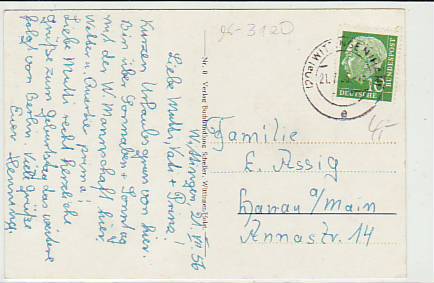 96-3120
Wittingen, 21. VII. 56
Liebe Mutti, Vati + Purzel!
Kurzen Urlaubsgruss von hier.
Bin über Sonnabend + Sonntag
mit der Mannschaft hier.
Wetter u. Quartier prima!
Liebe Mutti recht herzliche
Grüße zum Geburtstag das weitere
folgt von Berlin. Viele Grüße
Euer Henning.
Nr. 8 Verlag Buchhandlung Scheller, Wittingen
(20a) WITTINGEN
21.7.
e
10
DEUTSCHE BUNDESPOST
Familie
E. Assig
Hanau a/Main
Annastr. 14